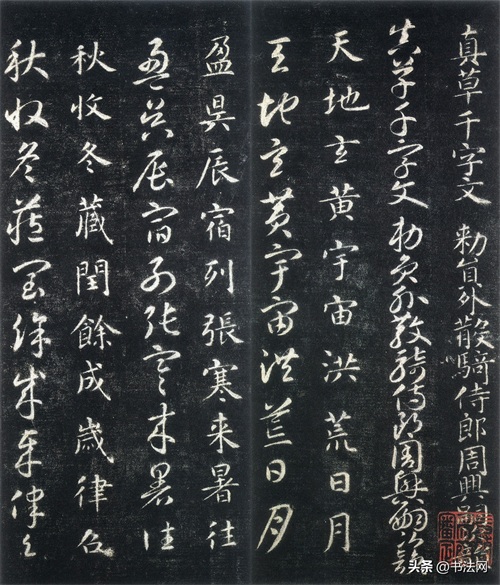 真草千字文 勅員外散騎侍郎周興嗣次韻
真草千字文 勅員外散騎侍郎周興嗣次韻
天地玄黄宇宙洪荒日月
天地玄黄宇宙洪荒日月
盈昃辰宿列張寒来暑往
盈昃辰宿列張寒来暑往
秋收冬藏閏餘成歲律吕
秋收冬藏閏餘成歲律吕
头条 @书法网